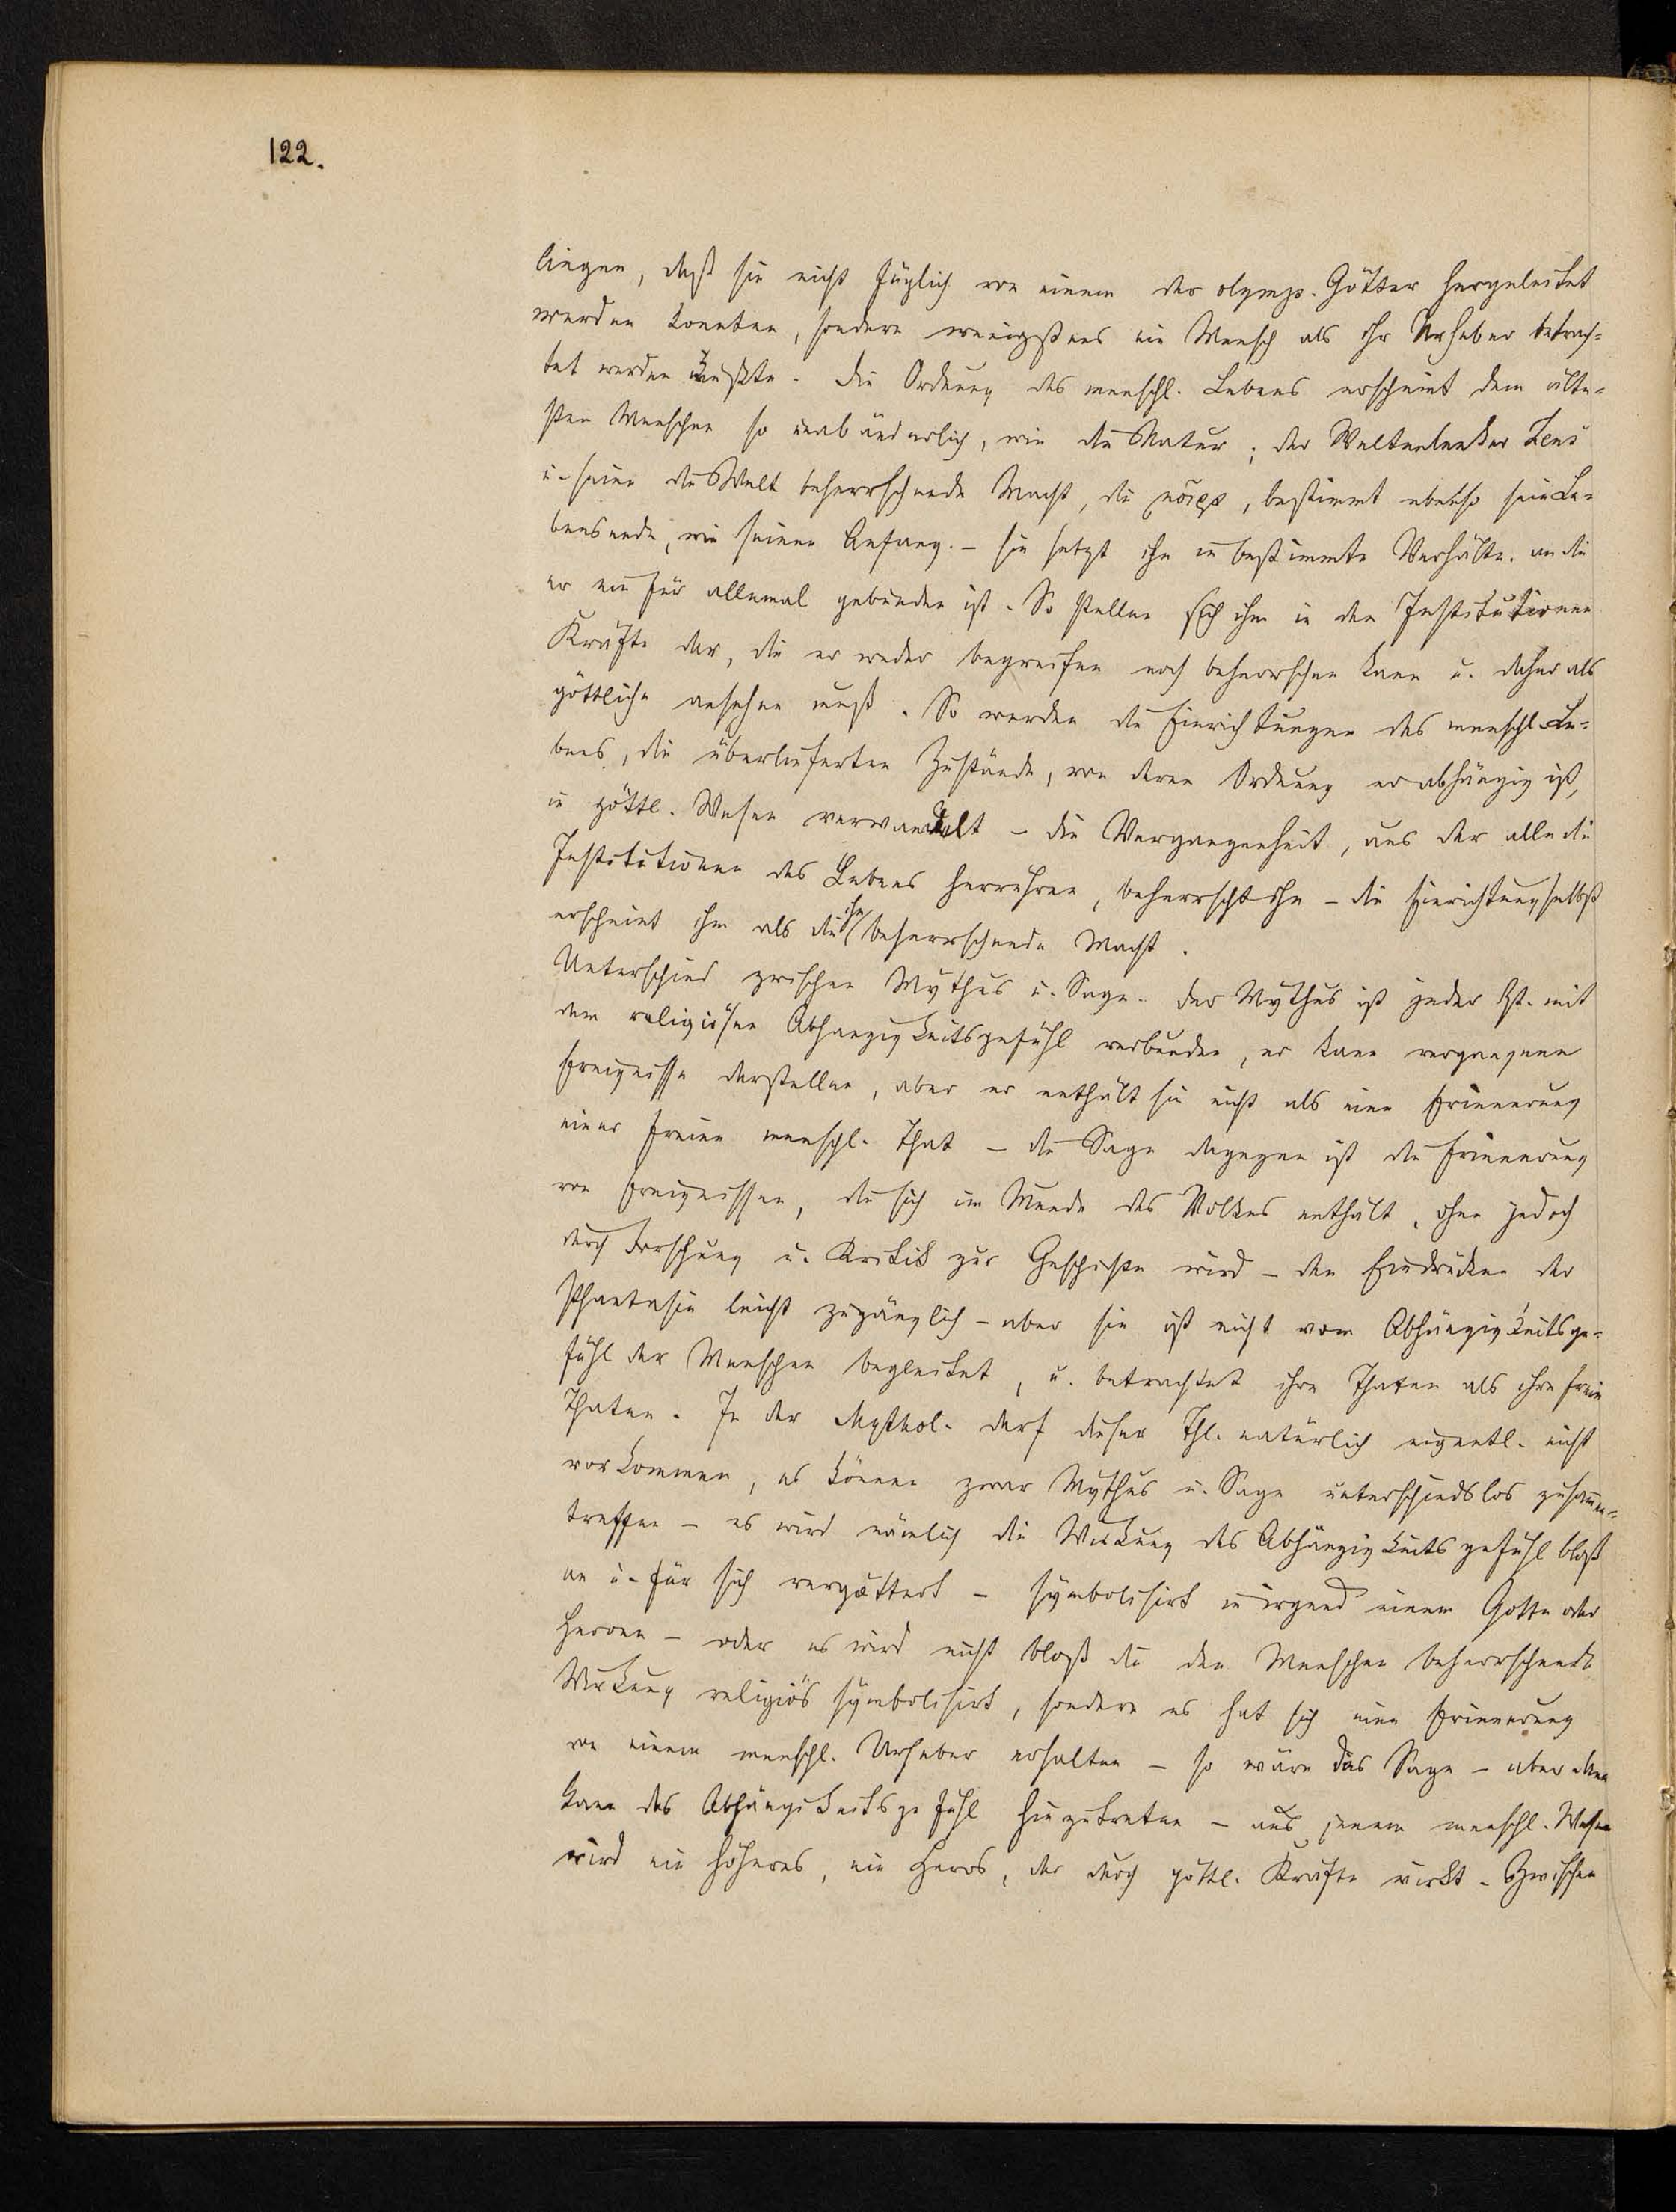 122.
liegen, daß sie nicht füglich von einem der olymp. Götter hergeleitet
werden konnten, sondern wenigstens ein Mensch als ihr Urheber betrach=
tet werden mußte. Die Ordnung des menschl. Lebens erscheint dem älte=
sten Menschen so unabänderlich, wie die Natur; der Weltenlenker Zeus
u. seine die Welt beherrschende Macht, die μοῖρα, bestimmt ebenso sein Le=
bensende, wie seinen Anfang. – sie setzt ihn in bestimmte Verhältn. an die
er ein für allemal gebunden ist. So stellen sich ihm in den Institutionen
Kräfte dar, die er weder begreifen noch beherrschen kann u. daher als
göttliche ansehen muß. So werden die Einrichtungen des menschl. Le=
bens, die überlieferten Zustände, von deren Ordnung er abhängig ist,
in göttl. Wesen verwandelt – die Vergangenheit, aus der alle die
Institutionen des Lebens herrühren, beherrscht ihn – die Einrichtung selbst
erscheint ihm als die ihn beherrschende Macht.
Unterschied zwischen Mythus u. Sage. Der Mythus ist jeder Zt. mit
dem religiösen Abhangigkeitsgefühl verbunden, er kann vergangene
Ereignisse darstellen, aber er enthält sie nicht als eine Erinnerung
einer freien menschl. That – die Sage dagegen ist die Erinnerung
von Ereignissen, die sich im Munde des Volkes enthält, ohne jedoch
durch Forschung u. Kritik zur Geschichte wird – den Eindrücken der
Phantasie leicht zugänglich – aber sie ist nicht vom Abhängigkeitsge=
fühl der Menschen begleitet, u. betrachtet ihre Thaten als ihre freie
Thaten. In der Mythol. darf dieser Thl. natürlich eigentl. nicht
vorkommen, es können zwar Mythus u. Sage unterschiedslos zusammen=
treffen – es wird nämlich die Wirkung des Abhängigkeitsgefühl bloß
an u. für sich vergöttert – symbolisirt in irgend einem Gotte oder
Heroen – oder es wird nicht bloß die den Menschen beherrschende
Wirkung religiös symbolisirt, sondern es hat sich eine Erinnerung
von einem menschl. Urheber erhalten – so wäre das Sage – aber dann
kann das Abhängikeitsgefühl hinzutreten – aus jenem menschl. Wesen
wird ein höheres, ein Heros, der durch göttl. Kräfte wirkt. Zwischen